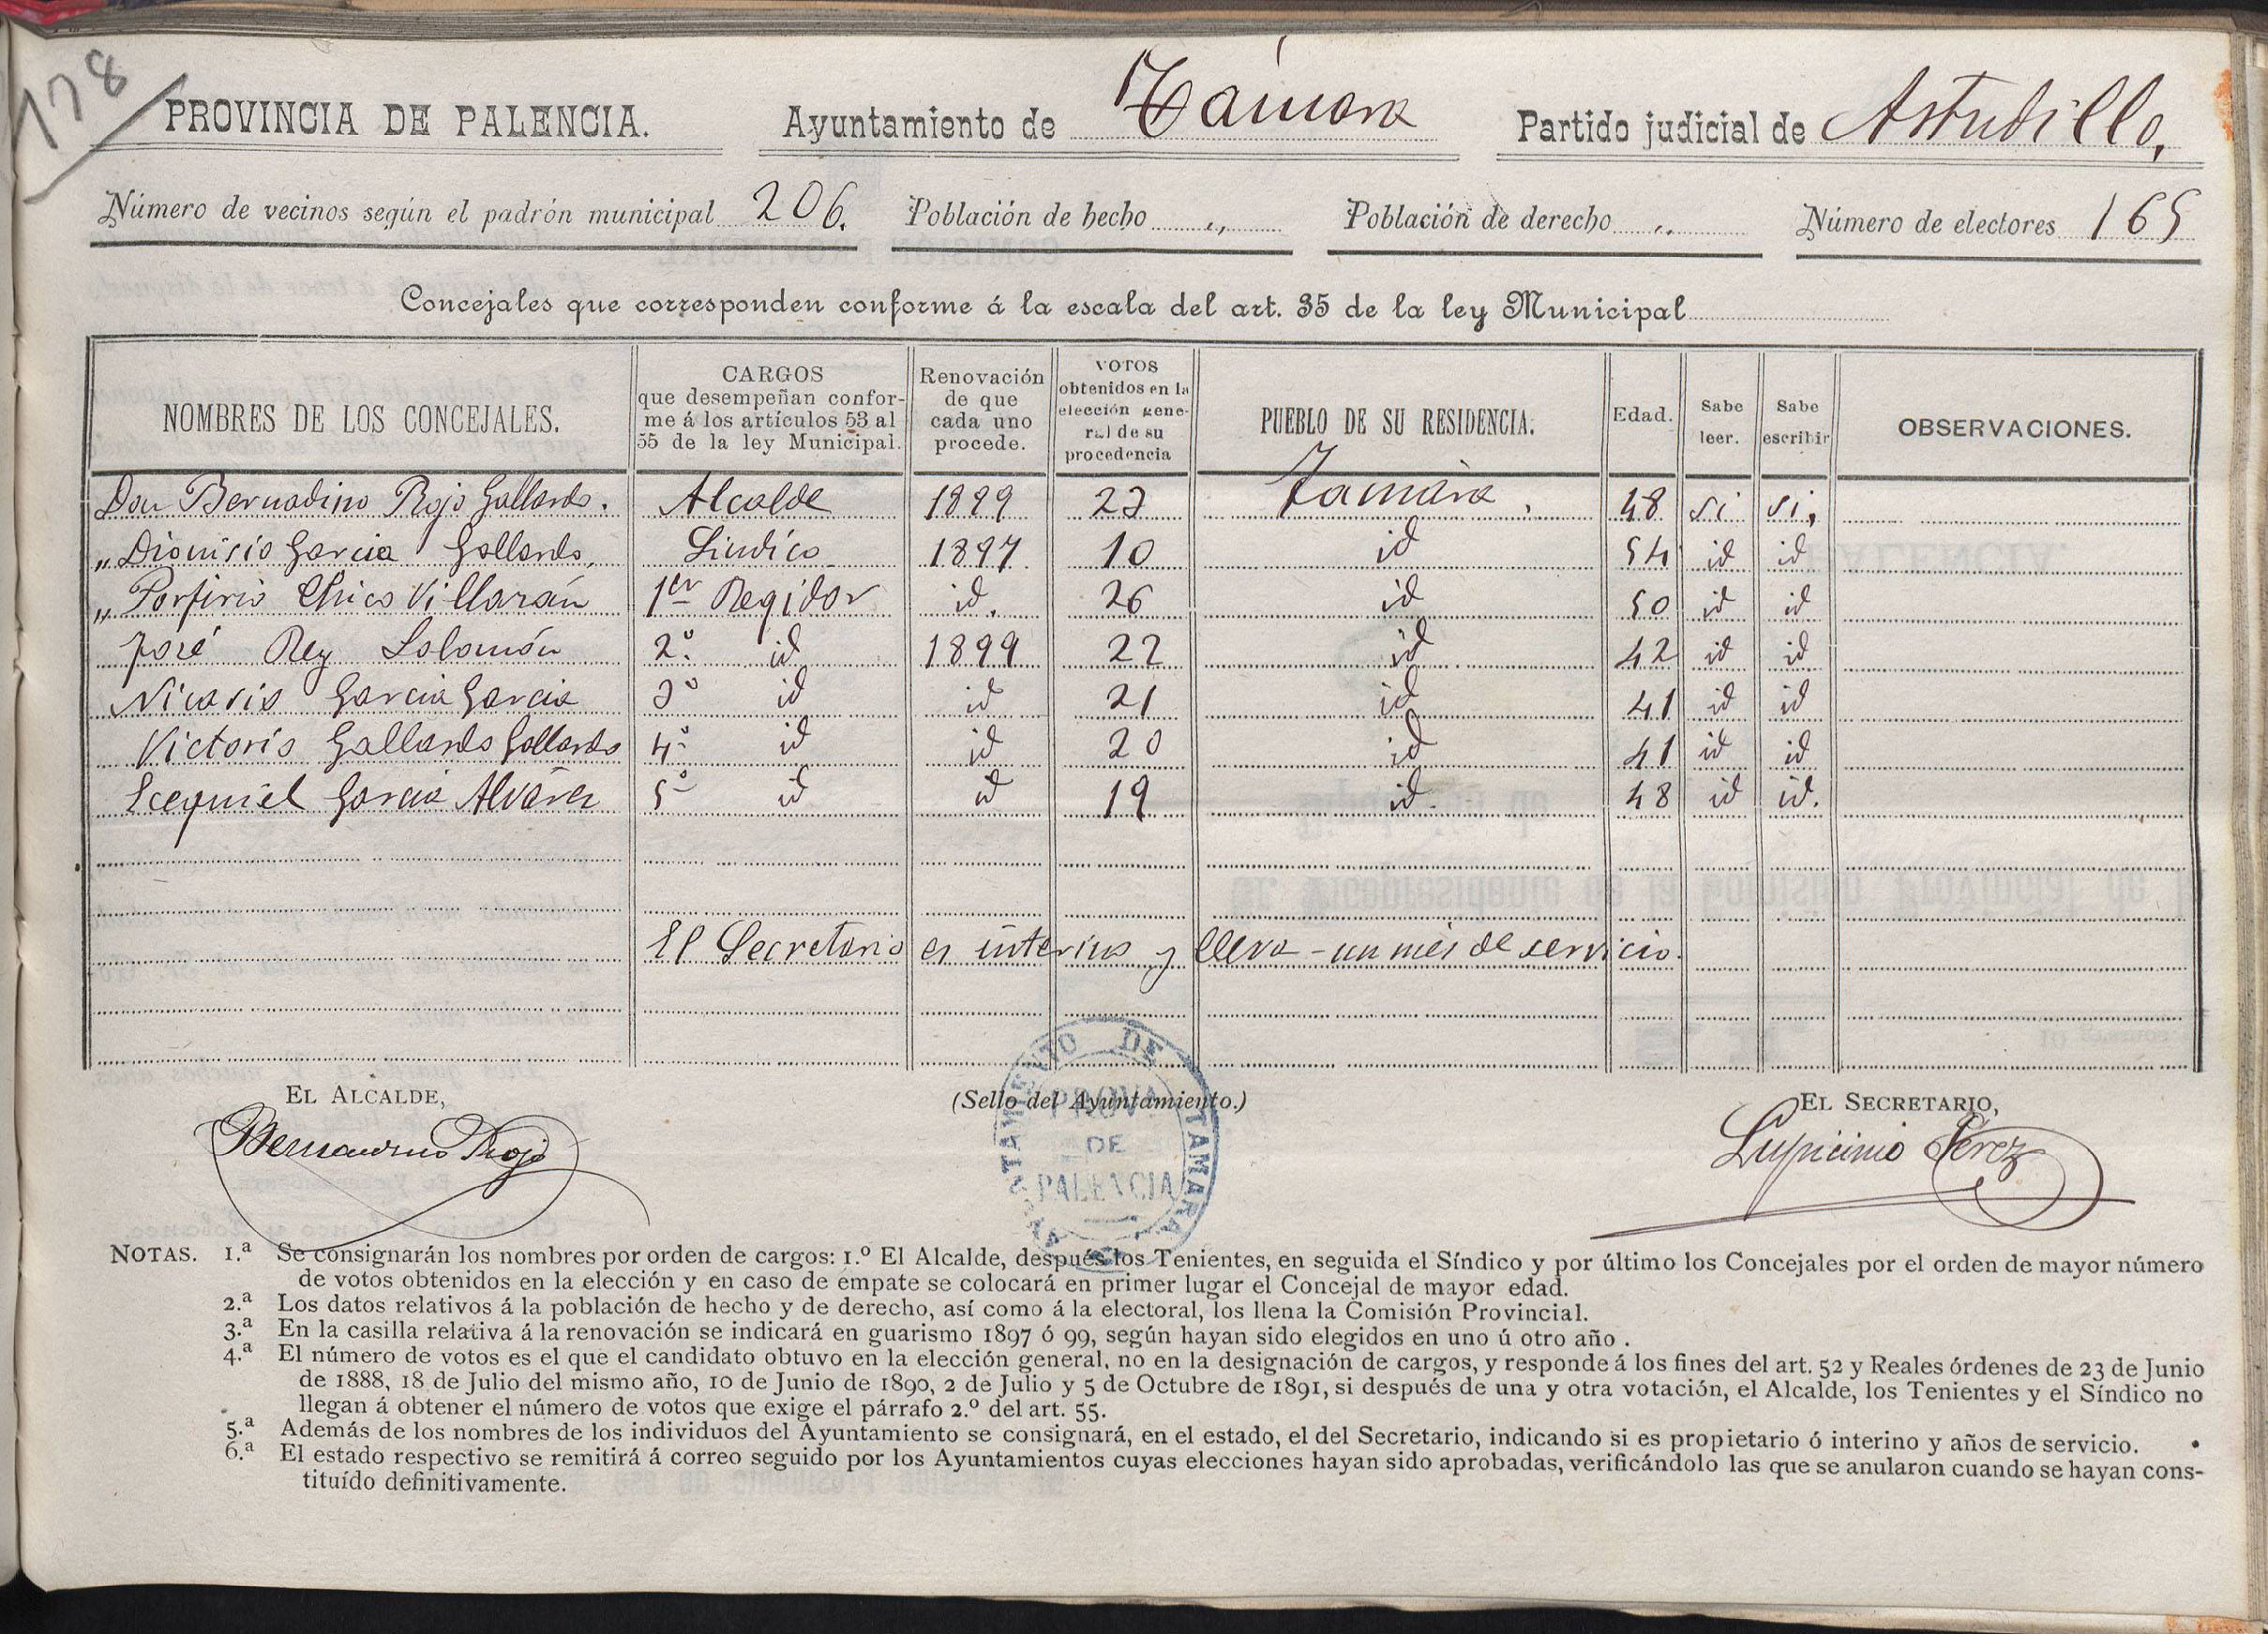 178
PROVINCIA DE PALENCIA. Ayuntamiento de Támara Partido judicial de Astudillo,
Número de vecinos según el padrón municipal 206. Población de hecho „ Población de derecho „ Número de electores 165
Concejales que corresponden conforme á la escala del art. 35 de la ley Municipal
NOMBRES DE LOS CONCEJALES. CARGOS que desempeñan conforme á los artículos 53 al 55 de la ley Municipal. Renovación de que cada uno procede. VOTOS obtenidos en la elección general de su procedencia PUEBLO DE SU RESIDENCIA. Edad. Sabe leer. Sabe escribir OBSERVACIONES.
Don Bernadino Rojo Gallardo. Alcalde 1899 23 Tamara. 48 si si,
„ Dionisio Garcia Gallardo, Sindico 1897 10 id 54 id id
„ Porfirio Chico Villarán 1er Regidor id. 26 id 50 id id
José Rey Salomón 2º id 1899 22 id 42 id id
Nicasio Garcia Garcia 3º id id 21 id 41 id id
Victorio Gallardo Gallardo 4º id id 20 id 41 id id
Ecequiel Garcia Alvárez 5º id id 19 id. 48 id id.
El Secretario es interino y lleva - un més de servicio.
EL ALCALDE, (Sello del Ayuntamiento.) EL SECRETARIO,
Bernardino Rojo
Lupicinio Perez
AYUNTAMIENTO DE TAMARA
PROVA
DE
PALENCIA
NOTAS. 1.ª Se consignarán los nombres por orden de cargos: 1.º El Alcalde, después los Tenientes, en seguida el Síndico y por último los Concejales por el orden de mayor número
de votos obtenidos en la elección y en caso de empate se colocará en primer lugar el Concejal de mayor edad.
2.ª Los datos relativos á la población de hecho y de derecho, así como á la electoral, los llena la Comisión Provincial.
3.ª En la casilla relativa á la renovación se indicará en guarismo 1897 ó 99, según hayan sido elegidos en uno ú otro año .
4.ª El número de votos es el que el candidato obtuvo en la elección general, no en la designación de cargos, y responde á los fines del art. 52 y Reales órdenes de 23 de Junio
de 1888, 18 de Julio del mismo año, 10 de Junio de 1890, 2 de Julio y 5 de Octubre de 1891, si después de una y otra votación, el Alcalde, los Tenientes y el Síndico no
llegan á obtener el número de votos que exige el párrafo 2.º del art. 55.
5.ª Además de los nombres de los individuos del Ayuntamiento se consignará, en el estado, el del Secretario, indicando si es propietario ó interino y años de servicio.
6.ª El estado respectivo se remitirá á correo seguido por los Ayuntamientos cuyas elecciones hayan sido aprobadas, verificándolo las que se anularon cuando se hayan cons-
tituído definitivamente.